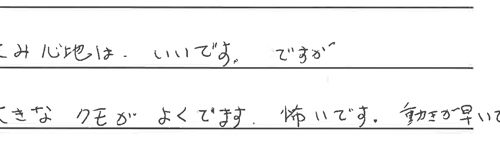 み心地は、いいです。ですが
大きな クモが よくでます. 怖いです。動きが早いで